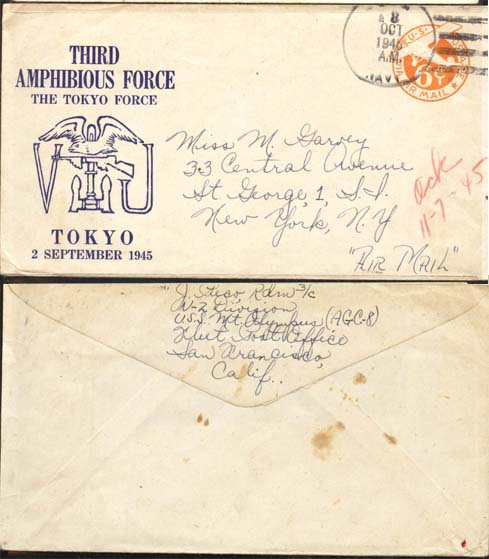 THIRD
AMPHIBIOUS FORCE
THE TOKYO FORCE
V J
TOKYO
2 SEPTEMBER 1945
8
OCT
1945
A.M.
NAVY
U.S. POSTAGE
VIA AIR MAIL
Miss M. Garvey
33 Central Avenue
St George, 1, S.I.
New York, N.Y
"AIR MAIL"
Ack
11-7-45
J. Rdm 3/c
N-2 Division
U.S.S. Mt. Olympus (AGC-8)
Fleet Post Office
San Francisco,
Calif..